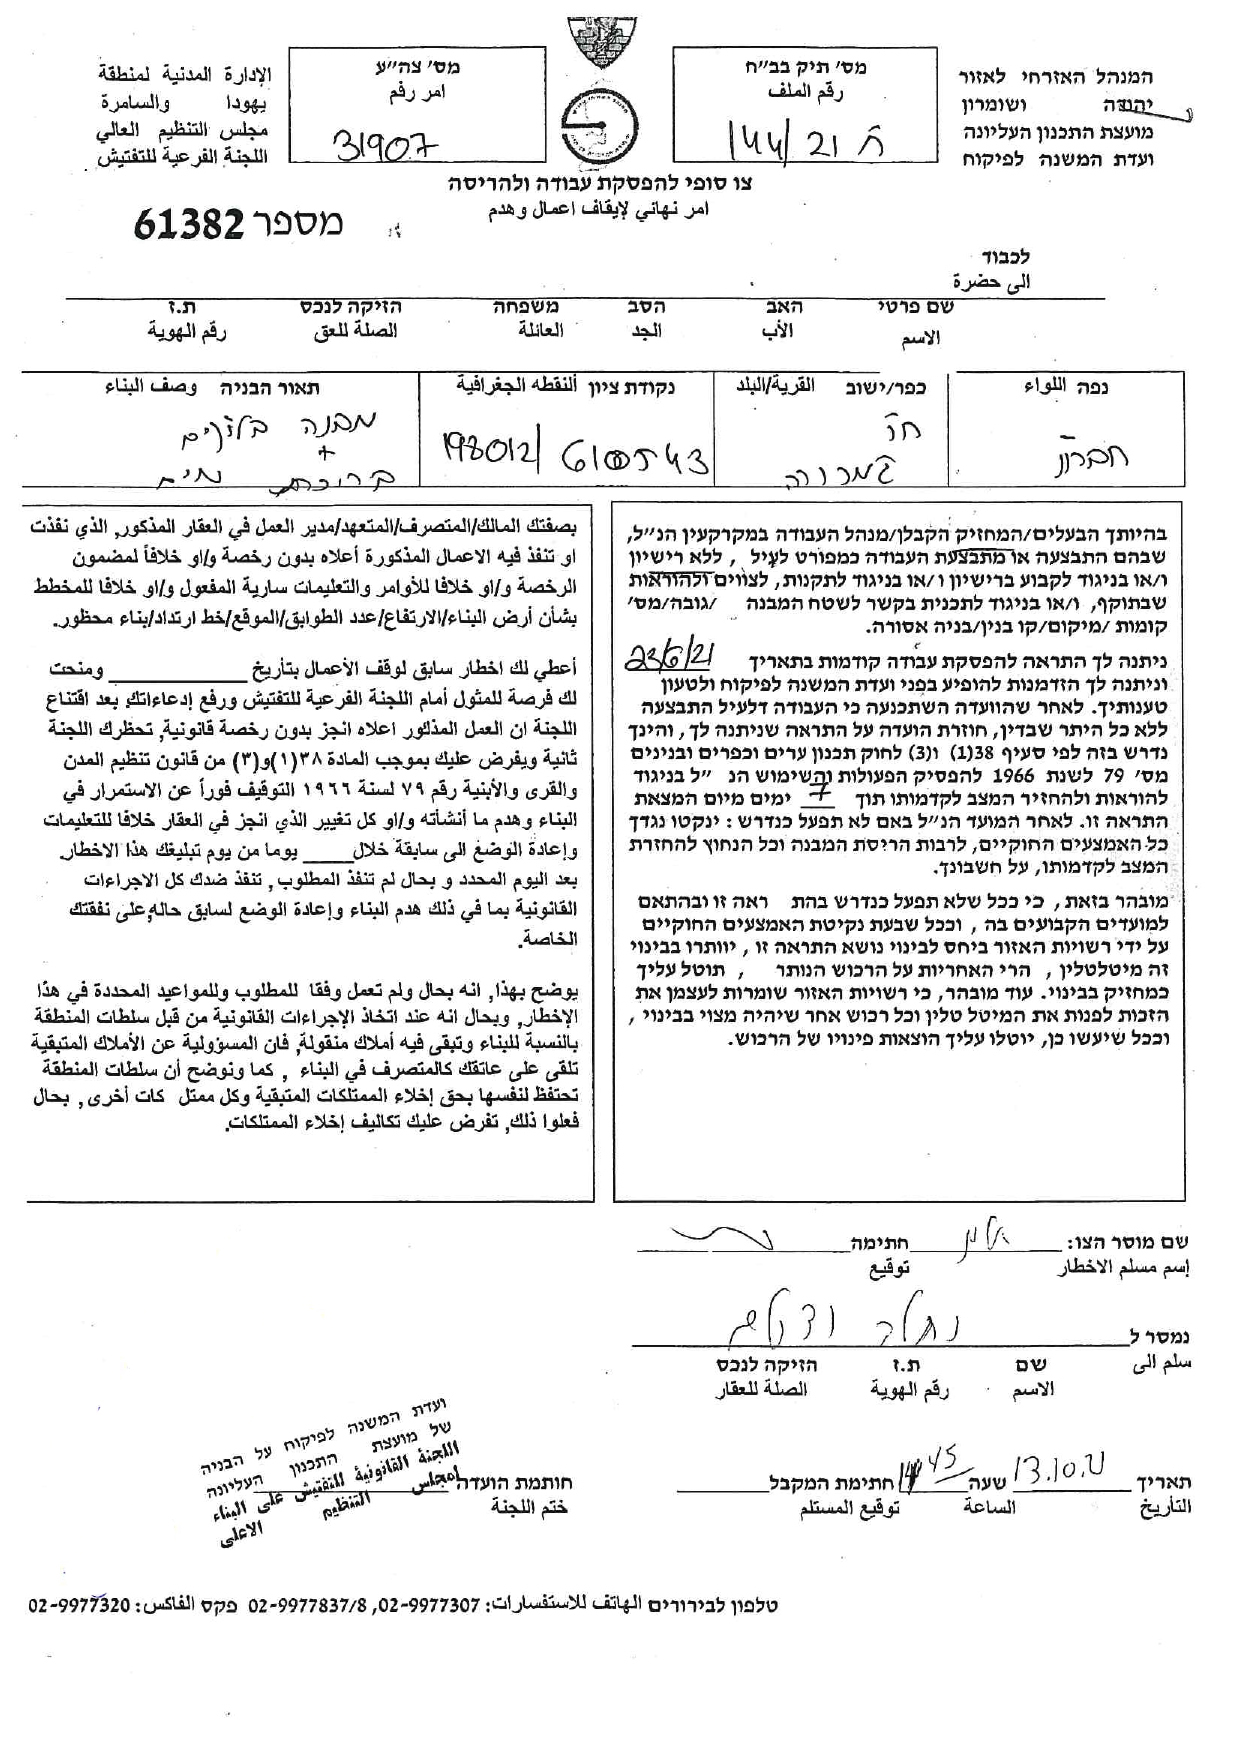 המנהל האזרחי לאזור
יהודה ושומרון
מועצת התכנון העליונה
ועדת המשנה לפיקוח
מס׳ תיק בב״ח
رقم الملف
ח 144/21
מס׳ צה״ע
امر رقم
31907
الإدارة المدنية لمنطقة
يهودا والسامرة
مجلس التنظيم العالي
اللجنة الفرعية للتفتيش
צו סופי להפסקת עבודה ולהריסה
امر نهاني لإيقاف اعمال وهدم
מספר 61382
לכבוד
الى حضرة
שם פרטי האב הסב משפחה הזיקה לנכס ת.ז
الاسم الأب الجد العائلة الصلة للعق رقم الهوية
נפה اللواء
כפר/ישוב القرية/البلد
נקודת ציון ألنقطه الجغرافية
תאור הבניה وصف البناء
חברון
ח׳
198012/610543
מבנה בלוקים
+
בריכת מים
בהיותך הבעלים/המחזיק הקבלן/מנהל העבודה במקרקעין הנ״ל,
שבהם התבצעה או מתבצעת העבודה כמפורט לעיל , ללא רישיון
ו/או בניגוד לקבוע ברישיון ו/או בניגוד לתקנות, לצווים ולהוראות
שבתוקף, ו/או בניגוד לתכנית בקשר לשטח המבנה /גובה/מס׳
קומות /מיקום/קו בנין/בניה אסורה.
ניתנה לך התראה להפסקת עבודה קודמות בתאריך 23/6/21
וניתנה לך הזדמנות להופיע בפני ועדת המשנה לפיקוח ולטעון
טענותיך. לאחר שהוועדה השתכנעה כי העבודה דלעיל התבצעה
ללא כל היתר שבדין, חוזרת הועדה על התראה שניתנה לך, והינך
נדרש בזה לפי סעיף 38(1) ו(3) לחוק תכנון ערים וכפרים ובנינים
מס׳ 79 לשנת 1966 להפסיק הפעולות והשימוש הנ ״ל בניגוד
להוראות ולהחזיר המצב לקדמותו תוך 7 ימים מיום המצאת
התראה זו. לאחר המועד הנ״ל באם לא תפעל כנדרש : ינקטו נגדך
כל האמצעים החוקיים, לרבות הריסת המבנה וכל הנחוץ להחזרת
המצב לקדמותו, על חשבונך.
מובהר בזאת, כי ככל שלא תפעל כנדרש בהת ראה זו ובהתאם
למועדים הקבועים בה , וככל שבעת נקיטת האמצעים החוקיים
על ידי רשויות האזור ביחס לבינוי נושא התראה זו , יוותרו בבינוי
זה מיטלטלין , הרי האחריות על הרכוש הנותר , תוטל עליך
כמחזיק בבינוי. עוד מובהר, כי רשויות האזור שומרות לעצמן את
הזכות לפנות את המיטל טלין וכל רכוש אחר שיהיה מצוי בבינוי ,
וככל שיעשו כן, יוטלו עליך הוצאות פינויו של הרכוש.
بصفتك المالك/المتصرف/المتعهد/مدير العمل في العقار المذكور, الذي نفذت
او تنفذ فيه الاعمال المذكورة أعلاه بدون رخصة و/او خلافاً لمضمون
الرخصة و/او خلافا للأوامر والتعليمات سارية المفعول و/او خلافا للمخطط
بشأن أرض البناء/الارتفاع/عدد الطوابق/الموقع/خط ارتداد/بناء محظور.
أعطي لك اخطار سابق لوقف الأعمال بتأريخ ____________ ومنحت
لك فرصة للمثول أمام اللجنة الفرعية للتفتيش ورفع إدعاءاتك بعد اقتناع
اللجنة ان العمل المذكور اعلاه انجز بدون رخصة قانونية, تحظرك اللجنة
ثانية ويفرض عليك بموجب المادة ٣٨(١)و(٣) من قانون تنظيم المدن
والقرى والأبنية رقم ٧٩ لسنة ١٩٦٦ التوقيف فوراً عن الاستمرار في
البناء وهدم ما أنشأته و/او كل تغيير الذي انجز في العقار خلافا للتعليمات
وإعادة الوضع الى سابقة خلال_____ يوما من يوم تبليغك هذا الاخطار.
بعد اليوم المحدد و بحال لم تنفذ المطلوب, تنفذ ضدك كل الاجراءات
القانونية بما في ذلك هدم البناء وإعادة الوضع لسابق حاله, على نفقتك
الخاصة.
يوضح بهذا, انه بحال ولم تعمل وفقا للمطلوب وللمواعيد المحددة في هذا
الإخطار, وبحال انه عند اتخاذ الإجراءات القانونية من قبل سلطات المنطقة
بالنسبة للبناء وتبقى فيه أملاك منقولة, فان المسؤولية عن الأملاك المتبقية
تلقى على عاتقك كالمتصرف في البناء , كما ونوضح أن سلطات المنطقة
تحتفظ لنفسها بحق إخلاء الممتلكات المتبقية وكل ممتل كات أخرى, بحال
فعلوا ذلك, تفرض عليك تكاليف إخلاء الممتلكات.
שם מוסר הצו: חתימה
إسم مسلم الاخطار توقيع
נמסר ל
سلم الى
שם ת.ז הזיקה לנכס
الاسم رقم الهوية الصلة للعقار
תאריך 13.10.21 שעה 1445 חתימת המקבל חותמת הועדה
التأريخ الساعة توقيع المستلم ختم اللجنة
ועדת המשנה לפיקוח על הבניה
של מועצת התכנון העליונה
اللجنة القانونية للتفتيش على البناء
لمجلس التنظيم الاعلى
טלפון לבירורים الهاتف للاستفسارات: 02-9977307, 02-9977837/8 פקס الفاكس: 02-9977320